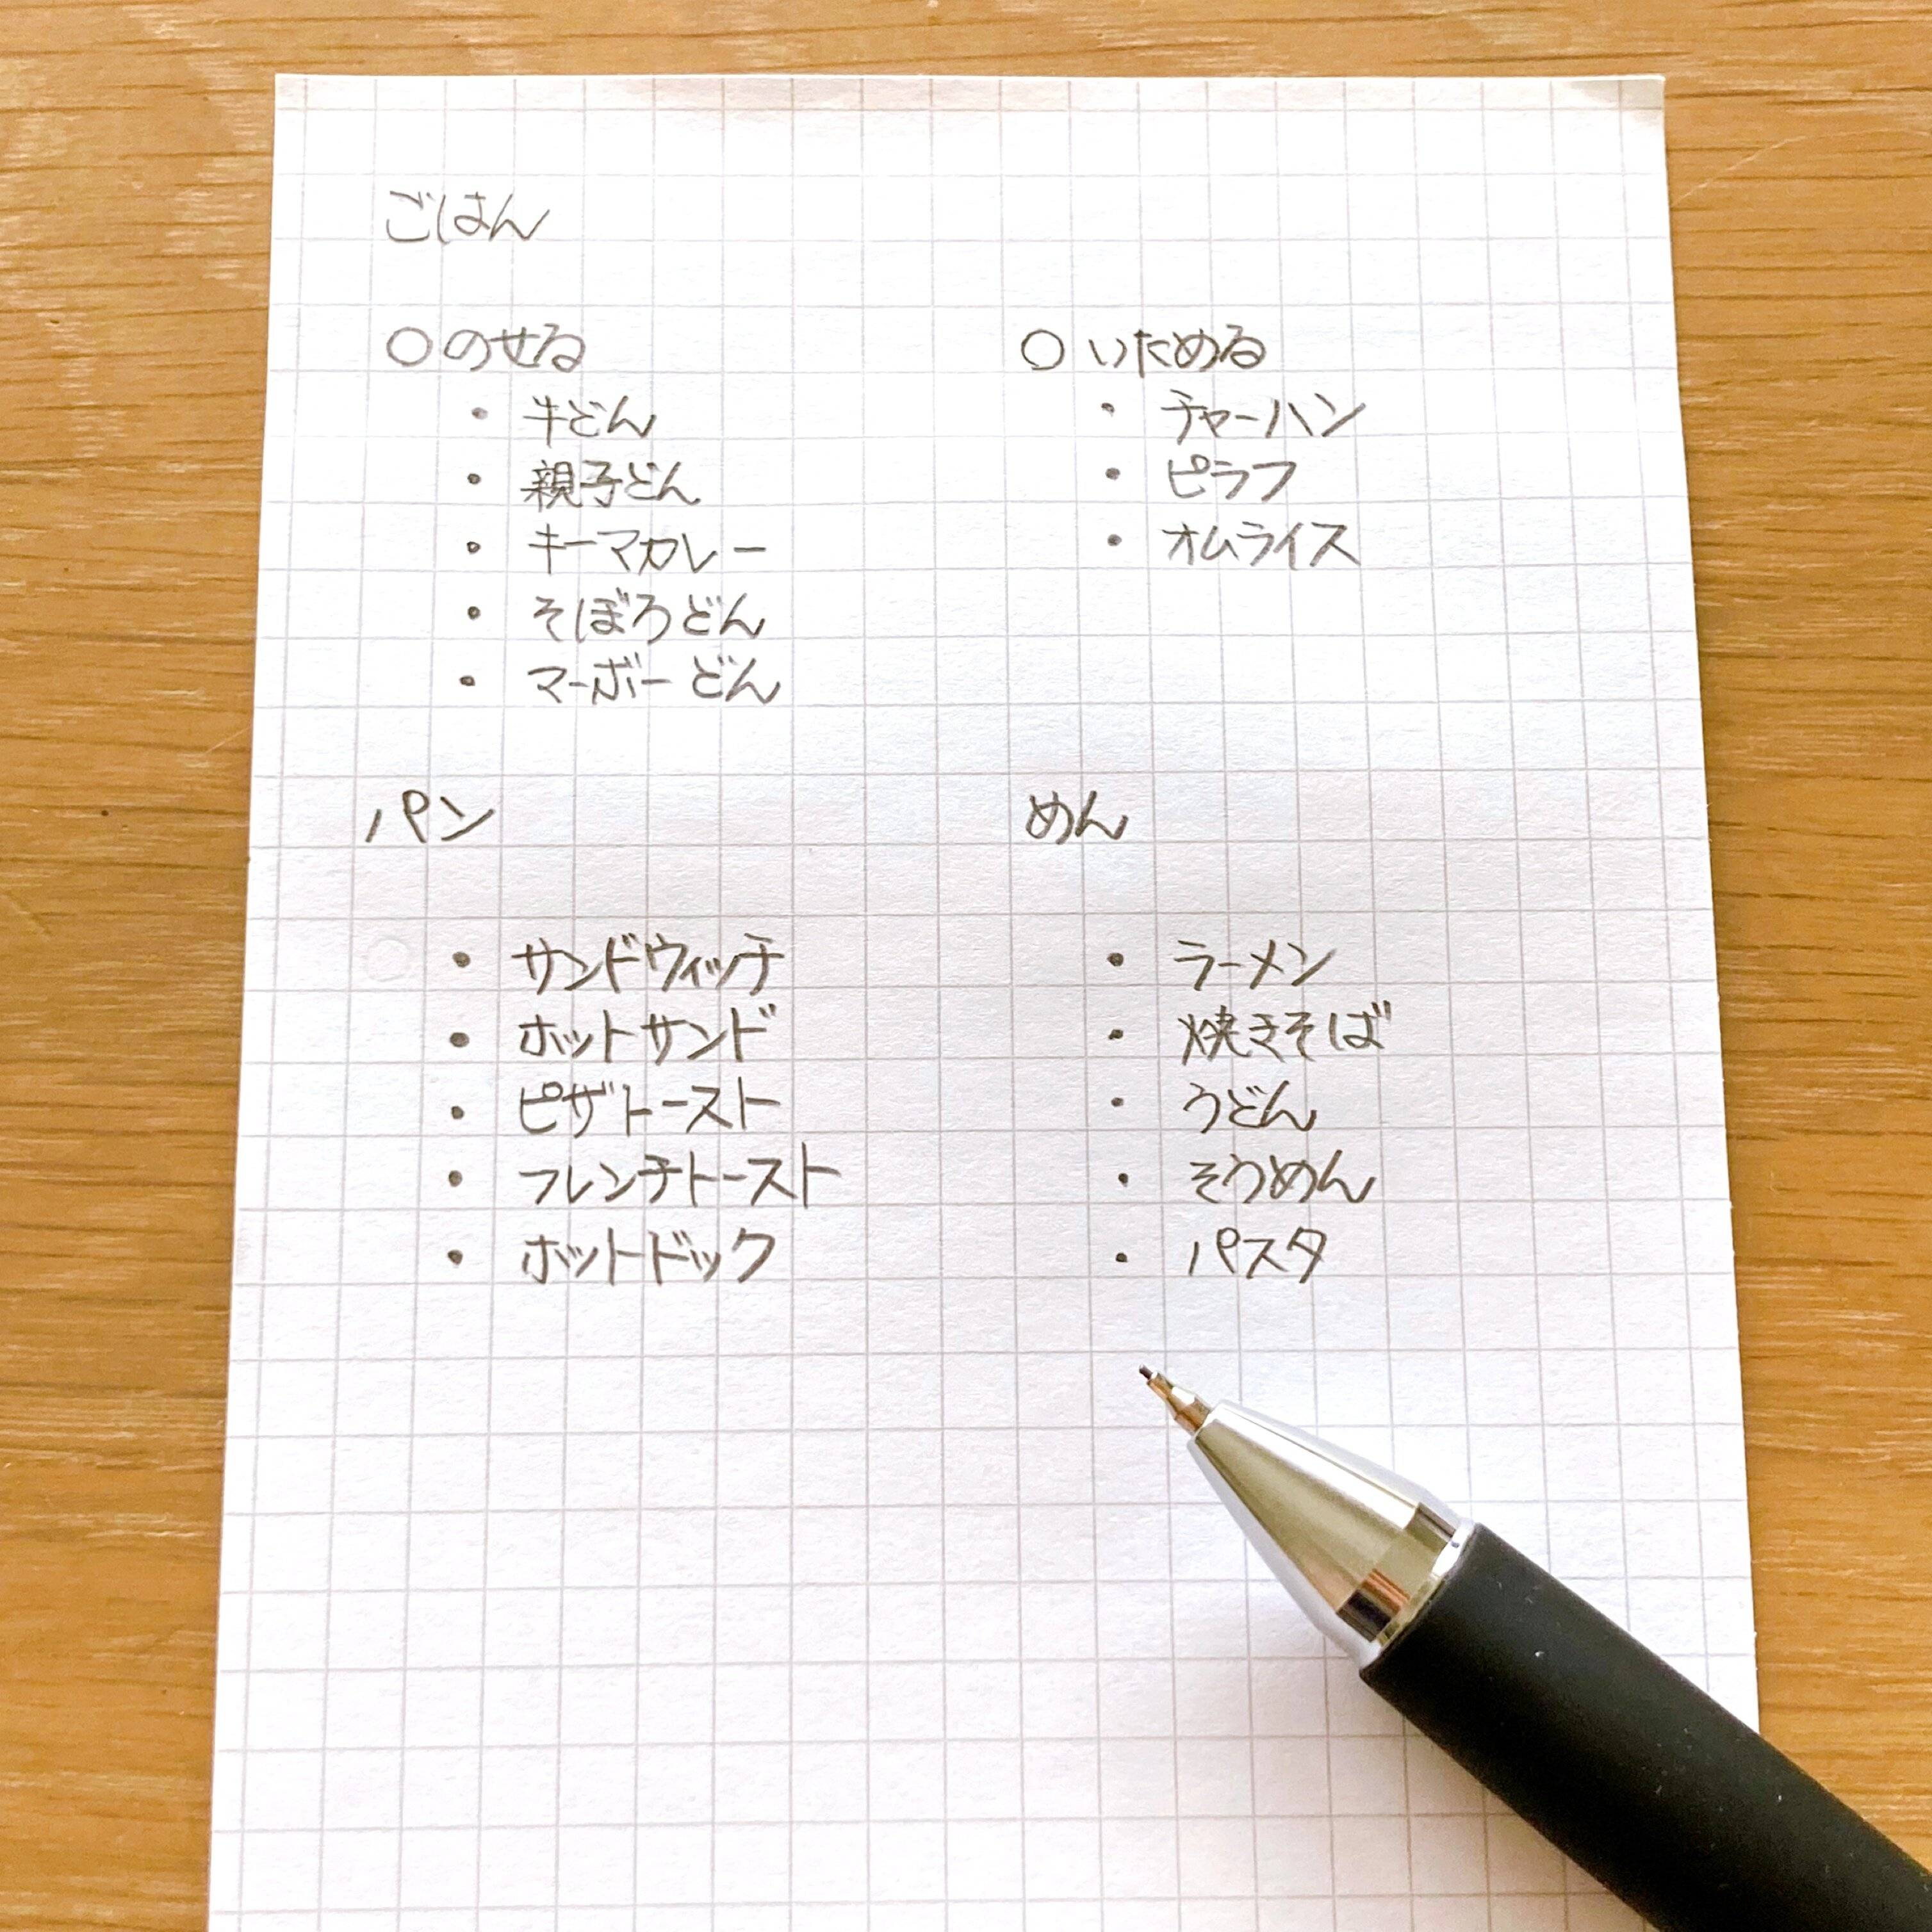 ごはん
○のせる
・牛どん
・親子どん
・キーマカレー
・そぼろどん
・マーボーどん
○いためる
・チャーハン
・ピラフ
・オムライス
パン
・サンドウィッチ
・ホットサンド
・ピザトースト
・フレンチトースト
・ホットドック
めん
・ラーメン
・焼きそば
・うどん
・そうめん
・パスタ